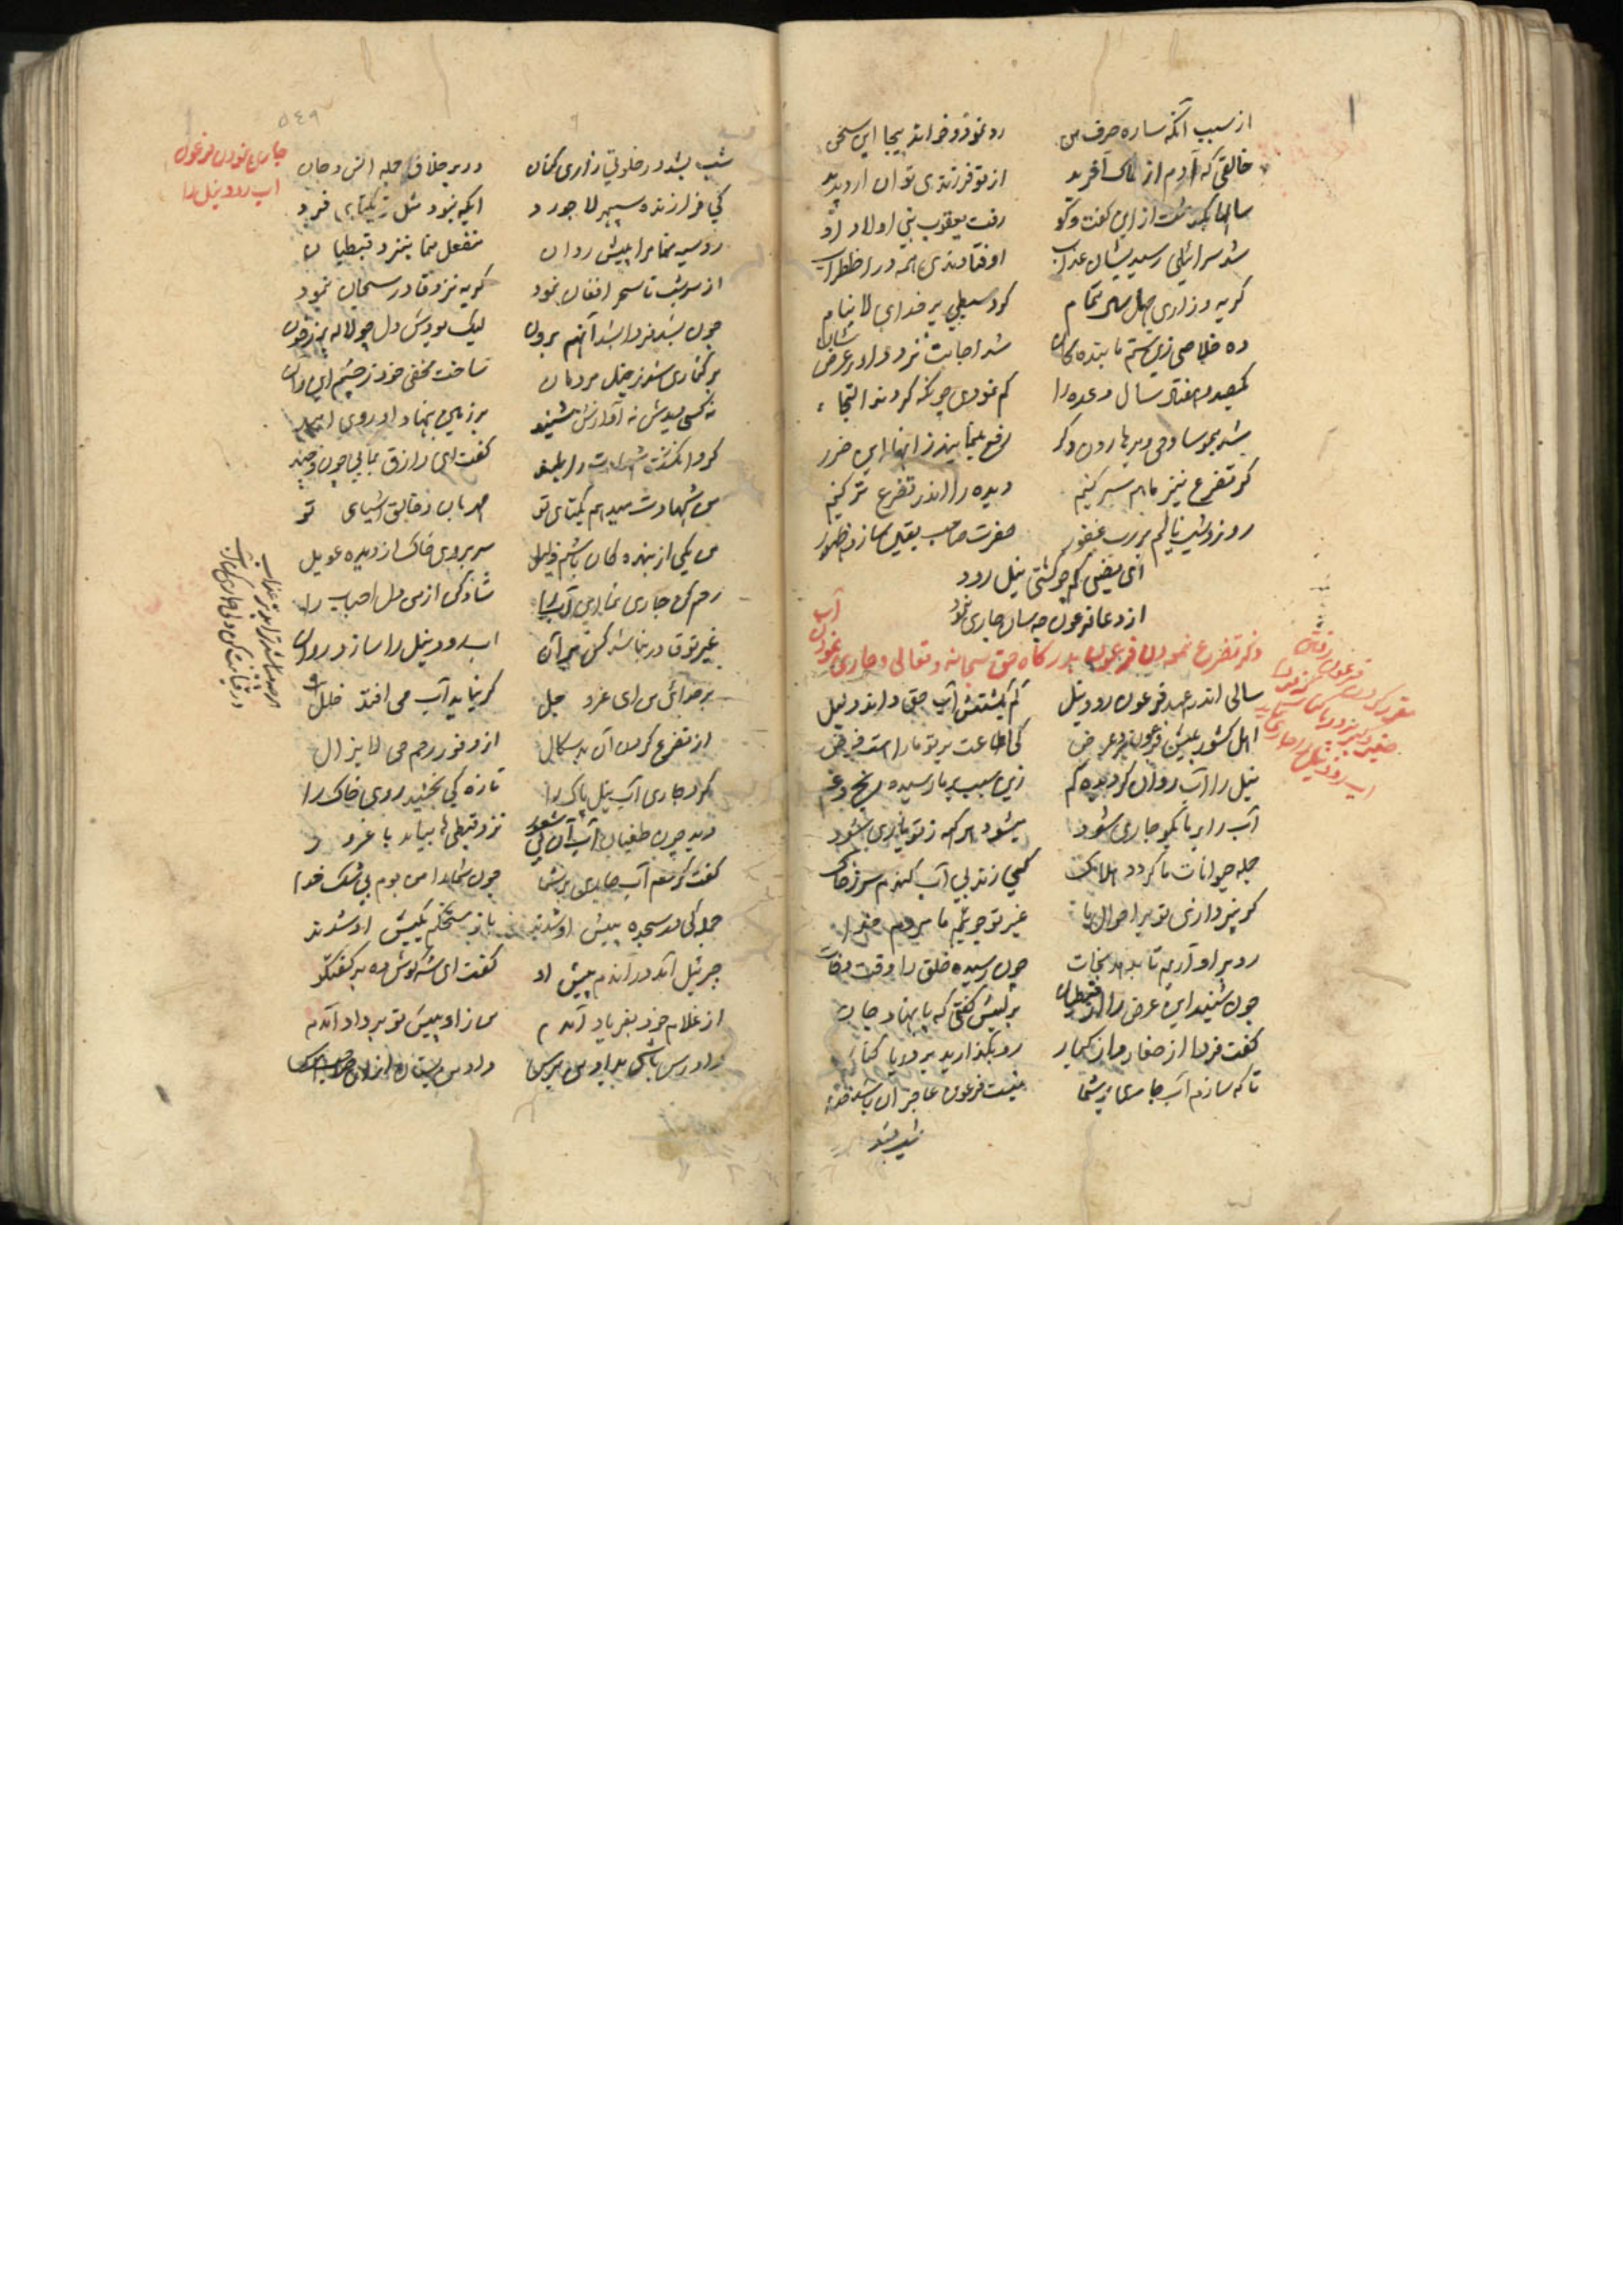 از سبب آنکه ساره حرف من رو نمود و خواند بیجا این سخن
خالقی که آدم از خاک آفرید از تو فرزندی توان آرد پدید
سالها بگذشت از این گفت و گو رفت یعقوب نبی اولاد او
شد سرائیلی رسید بیشان عذاب اوفتادندی همه در اضطراب
گریه و زاری چهل صبح تمام کرد سبطی بر خدای لا ینام
ده خلاصی زین ستم ما بنده گان شد اجابت نزد داور عرض شان
یکصد و هفتاد سال وعده را کم نمودی چونکه کردند التجا
شد بموسا وحی و بر هارون دگر رفع بنمایند ز آنها این ضرر
گر تضرع نیز ما هم سر کنیم دیده را اندر تضرع تر کنیم
روز و شب نالیم بر رب غفور حضرت صاحب یقین سازد ظهور
ای فیضی که چو کشتی نیل رود
از دعا فرعون چه سان جاری نمود
ذکر تضرع نمودن فرعون بدرگاه حق سبحانه و تعالی و جاری نمودن آب
سالی اندر عهد فرعون رود نیل کم بگشتش آب حق داند دلیل
اهل کشور پیش فرعون برد عرض کی اطاعت بر تو ما را است فرض
نیل را آب روان گردیده کم زین سبب بر ما رسیده رنج و غم
آب را بر ما بگو جاری شود میشود هر گه ز تو یاری شود
جمله حیوانات ما گردد هلاک کی ز بی آب کنیم سر ز خاک
گر نپردازی تو بر احوال ما غیر تو جوئیم ما مردم خدا
رو بر او آریم تا بدهد نجات چون رسیده خلق را وقت وفات
چون شنید این عرض را از قبطیان بر لبش گفتی که پا بنهاد جان
گفت فردا از صغار و از کبار رو بگذارید بر دریا کنار
تا که سازم آب جاری بر شما نیست فرعون عاجز آن باشد خدا
شب بشد
مقرر کردن فرعون رفتن
صغیر و کبیر بدریا کنار که فردا
آب رود نیل را جاری نماید
٥٤٩
جاری نمودن فرعون
آب رود نیل را
شب بشد در خلوتی زاری کنان در بر خلاق جمله انس و جان
کی فرازنده سپهر لاجورد ایکه نبود مثل تو یکتای فرد
رو سیه منما مرا پیش روان منفعل منما بنزد قبطیان
از سر شب تا سحر افغان نمود گریه نزد قادر سبحان نمود
چون بشد فردا بشد آنهم برون لیک بودش دل چو لاله پر ز خون
بر کناری شد ز خیل مردمان ساخت مخفی خود ز چشم این و آن
نه کسی دیدش نه آوازش شنید بر زمین بنهاد او روی امید
کرد انگشت شهادت را بلند گفت ای رازق بمایی چون و چند
من شهادت میدهم یکتای تو مهربان و خالق اشیای تو
من یکی از بنده گان باشم ذلیل سر بروی خاک از دیده عویل
رحم کن جاری نما این آب را شاد کن از من دل احباب را
غیر تو قادر نباشد کس بر آن آب رود نیل را سازد روان
بر خدائی من ای عز و جل گر نیاید آب می افتد خلل
از تضرع کردن آن بد سگال از وفور رحم حی لا یزال
کرد جاری آب نیل پاک را تازه کی بخشید روی خاک را
دید چون طغیان آب آن بی شعور نزد قبطی ها بیامد با غرور
گفت کردم آب جاری بر شما چون شما را من بوم بی شک خدا
جمله گی در سجده پیش او شدند باز مستحکم بکیش او شدند
جبرئیل آمد در آندم پیش او گفت ای شه گوش ده بر گفتگو
از غلام خود بفریاد آمدم من ازو پیش تو بر داد آمدم
دادرس باشی بداد من برس داد من بستان از آن